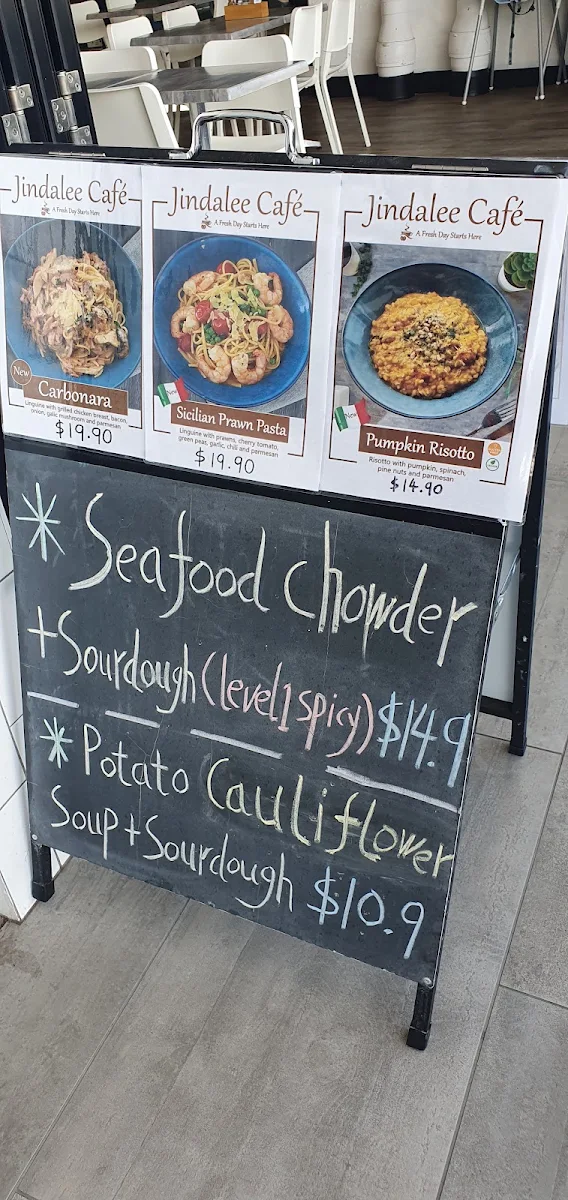 Jindalee Café
A Fresh Day Starts Here
New
Carbonara
Linguine with grilled chicken breast, bacon,
onion, galic mushroom and parmesan
$19.90
Jindalee Café
A Fresh Day Starts Here
New
Sicilian Prawn Pasta
Linguine with prawns, cherry tomato,
green peas, garlic, chili and parmesan
$19.90
Jindalee Café
A Fresh Day Starts Here
New
Pumpkin Risotto
Risotto with pumpkin, spinach,
pine nuts and parmesan
$14.90
* Seafood Chowder
+ Sourdough (level 1 spicy) $14.9
* Potato Cauliflower
Soup + Sourdough $10.9